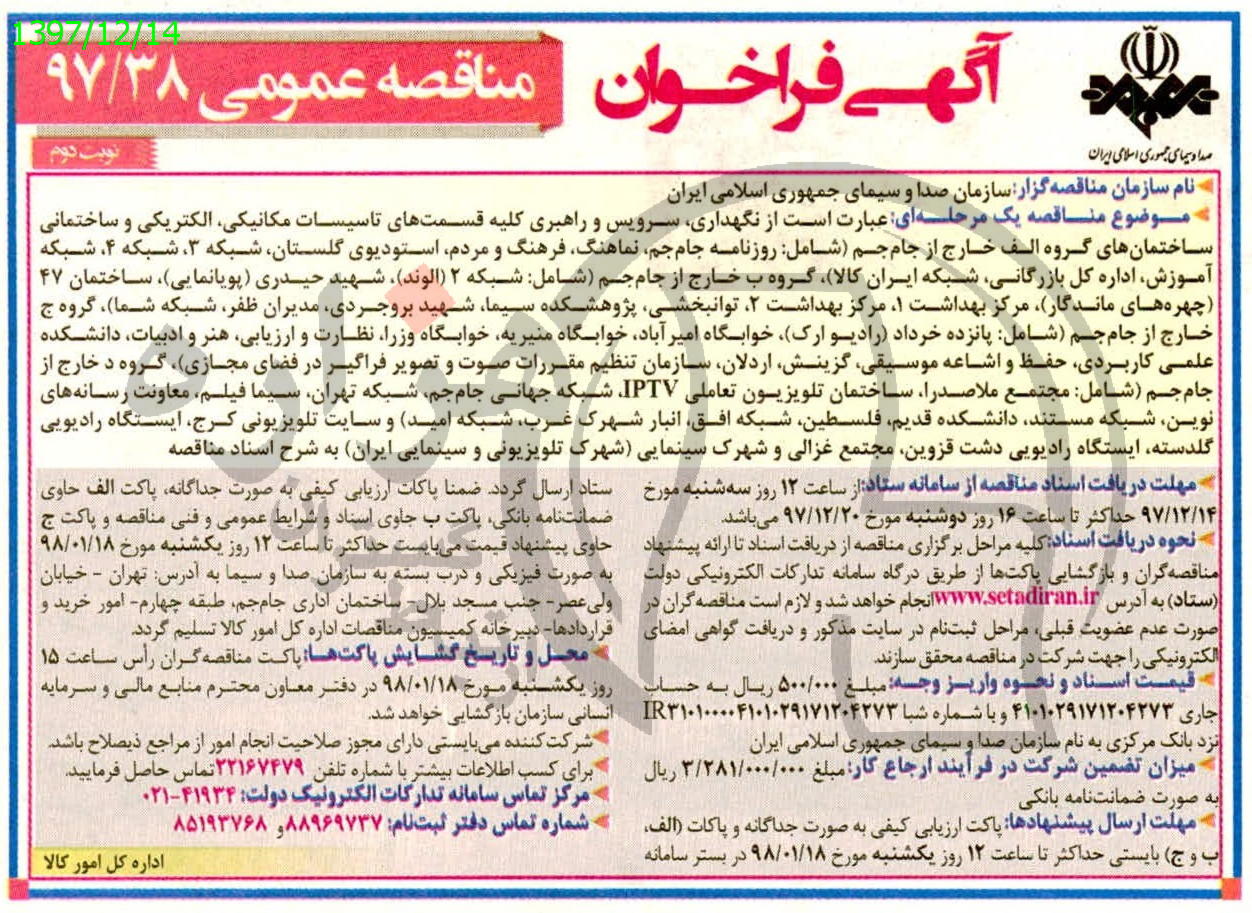 1397/12/14
آگهی فراخوان
مناقصه عمومی ۹۷/۳۸
نوبت دوم
صدا و سیمای جمهوری اسلامی ایران
نام سازمان مناقصه‌گزار: سازمان صدا و سیمای جمهوری اسلامی ایران
موضوع مناقصه یک مرحله‌ای: عبارت است از نگهداری، سرویس و راهبری کلیه قسمت‌های تاسیسات مکانیکی، الکتریکی و ساختمانی
ساختمان‌های گروه الف خارج از جام‌جم (شامل: روزنامه جام‌جم، نماهنگ، فرهنگ و مردم، استودیوی گلستان، شبکه ۳، شبکه ۴، شبکه
آموزش، اداره کل بازرگانی، شبکه ایران کالا)، گروه ب خارج از جام‌جم (شامل: شبکه ۲ (الوند)، شهید حیدری (پویانمایی)، ساختمان ۴۷
(چهره‌های ماندگار)، مرکز بهداشت ۱، مرکز بهداشت ۲، توانبخشی، پژوهشکده سیما، شهید بروجردی، مدیران ظفر، شبکه شما)، گروه ج
خارج از جام‌جم (شامل: پانزده خرداد (رادیو ارک)، خوابگاه امیرآباد، خوابگاه منیریه، خوابگاه وزرا، نظارت و ارزیابی، هنر و ادبیات، دانشکده
علمی کاربردی، حفظ و اشاعه موسیقی، گزینش، اردلان، سازمان تنظیم مقررات صوت و تصویر فراگیر در فضای مجازی)، گروه د خارج از
جام‌جم (شامل: مجتمع ملاصدرا، ساختمان تلویزیون تعاملی IPTV، شبکه جهانی جام‌جم، شبکه تهران، سیما فیلم، معاونت رسانه‌های
نوین، شبکه مستند، دانشکده قدیم، فلسطین، شبکه افق، انبار شهرک غرب، شبکه امید) و سایت تلویزیونی کرج، ایستگاه رادیویی
گلدسته، ایستگاه رادیویی دشت قزوین، مجتمع غزالی و شهرک سینمایی (شهرک تلویزیونی و سینمایی ایران) به شرح اسناد مناقصه
مهلت دریافت اسناد مناقصه از سامانه ستاد: از ساعت ۱۲ روز سه‌شنبه مورخ
۹۷/۱۲/۱۴ حداکثر تا ساعت ۱۶ روز دوشنبه مورخ ۹۷/۱۲/۲۰ می‌باشد.
نحوه دریافت اسناد: کلیه مراحل برگزاری مناقصه از دریافت اسناد تا ارائه پیشنهاد
مناقصه‌گران و بازگشایی پاکت‌ها از طریق درگاه سامانه تدارکات الکترونیکی دولت
(ستاد) به آدرس www.setadiran.ir انجام خواهد شد و لازم است مناقصه‌گران در
صورت عدم عضویت قبلی، مراحل ثبت‌نام در سایت مذکور و دریافت گواهی امضای
الکترونیکی را جهت شرکت در مناقصه محقق سازند.
قیمت اسناد و نحوه واریز وجه: مبلغ ۵۰۰/۰۰۰ ریال به حساب
جاری ۴۱۰۱۰۲۹۱۷۱۲۰۴۲۷۳ و با شماره شبا IR۳۱۰۱۰۰۰۰۴۱۰۱۰۲۹۱۷۱۲۰۴۲۷۳
نزد بانک مرکزی به نام سازمان صدا و سیمای جمهوری اسلامی ایران
میزان تضمین شرکت در فرآیند ارجاع کار: مبلغ ۳/۲۸۱/۰۰۰/۰۰۰ ریال
به صورت ضمانت‌نامه بانکی
مهلت ارسال پیشنهادها: پاکت ارزیابی کیفی به صورت جداگانه و پاکات (الف،
ب و ج) بایستی حداکثر تا ساعت ۱۲ روز یکشنبه مورخ ۹۸/۰۱/۱۸ در بستر سامانه
ستاد ارسال گردد. ضمنا پاکات ارزیابی کیفی به صورت جداگانه، پاکت الف حاوی
ضمانت‌نامه بانکی، پاکت ب حاوی اسناد و شرایط عمومی و فنی مناقصه و پاکت ج
حاوی پیشنهاد قیمت می‌بایست حداکثر تا ساعت ۱۲ روز یکشنبه مورخ ۹۸/۰۱/۱۸
به صورت فیزیکی و درب بسته به سازمان صدا و سیما به آدرس: تهران - خیابان
ولی‌عصر- جنب مسجد بلال- ساختمان اداری جام‌جم، طبقه چهارم- امور خرید و
قراردادها- دبیرخانه کمیسیون مناقصات اداره کل امور کالا تسلیم گردد.
محل و تاریخ گشایش پاکت‌ها: پاکت مناقصه‌گران رأس ساعت ۱۵
روز یکشنبه مورخ ۹۸/۰۱/۱۸ در دفتر معاون محترم منابع مالی و سرمایه
انسانی سازمان بازگشایی خواهد شد.
شرکت‌کننده می‌بایستی دارای مجوز صلاحیت انجام امور از مراجع ذیصلاح باشد.
برای کسب اطلاعات بیشتر با شماره تلفن ۲۲۱۶۷۴۷۹ تماس حاصل فرمایید.
مرکز تماس سامانه تدارکات الکترونیک دولت: ۴۱۹۳۴-۰۲۱
شماره تماس دفتر ثبت‌نام: ۸۸۹۶۹۷۳۷ و ۸۵۱۹۳۷۶۸
اداره کل امور کالا